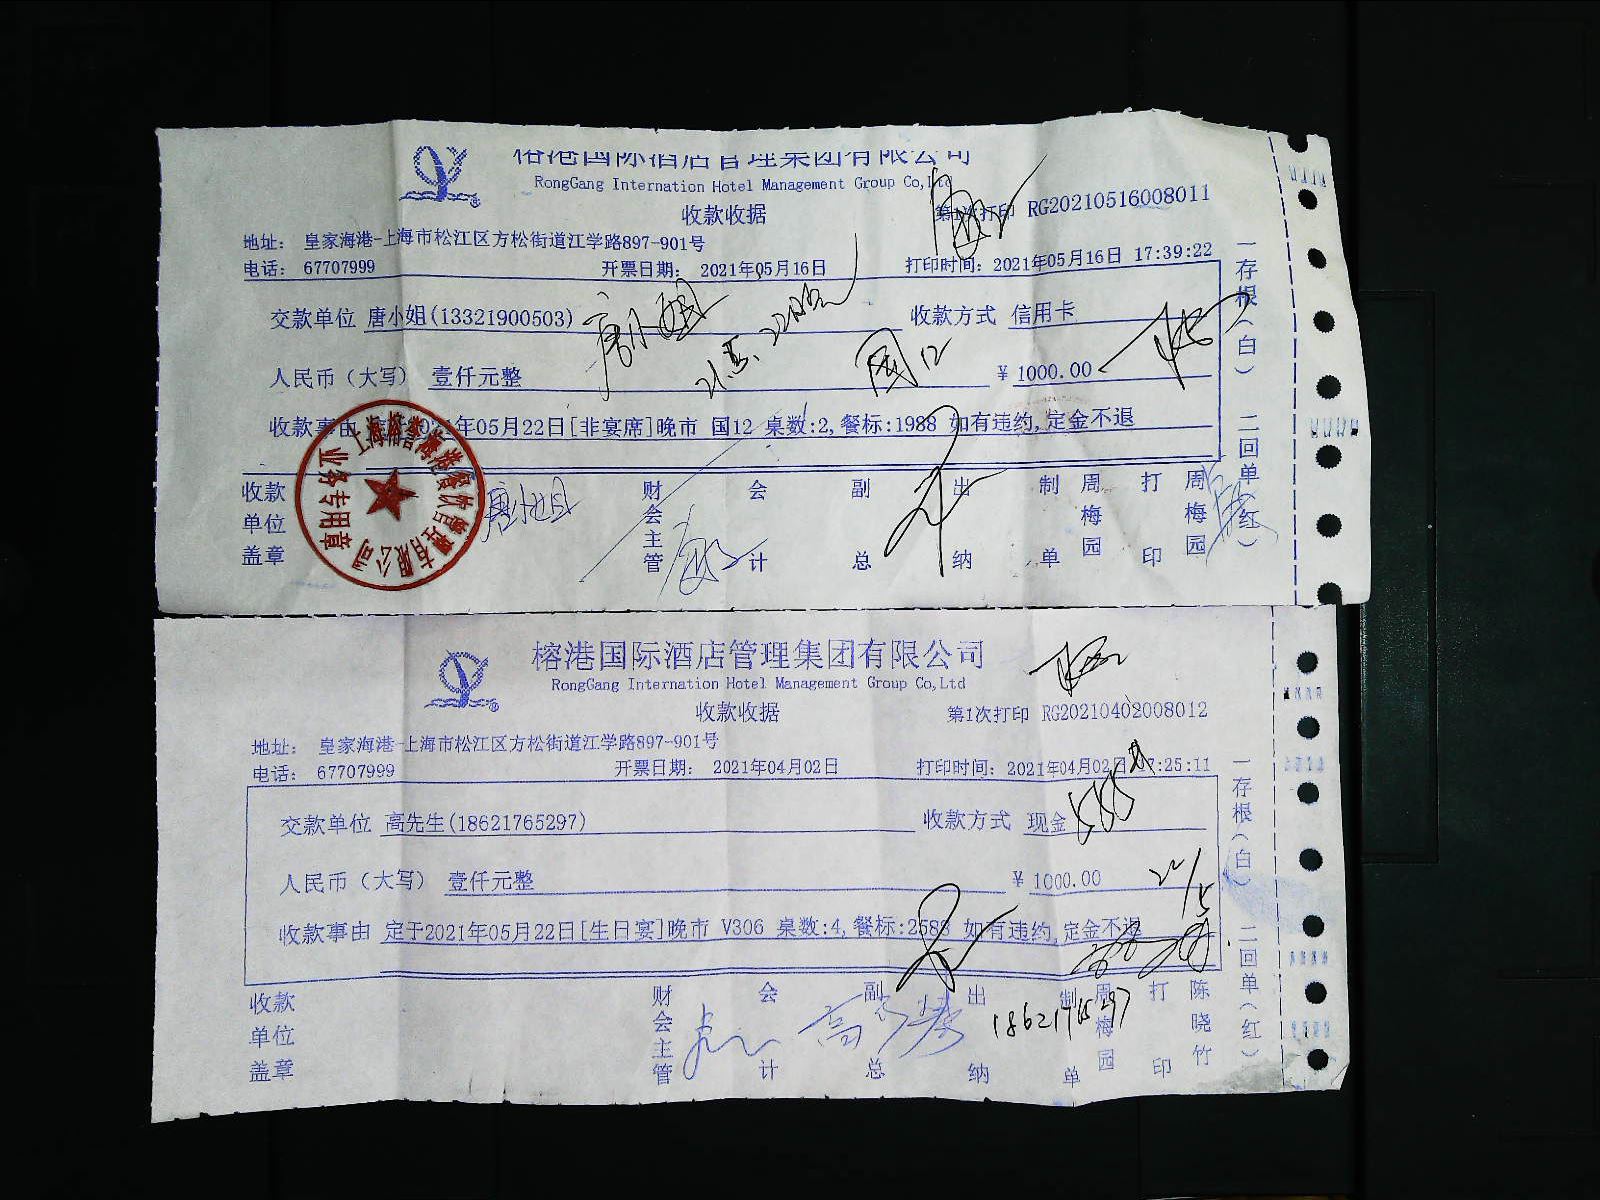 榕港国际酒店管理集团有限公司
RongGang Internation Hotel Management Group Co,Ltd
收款收据
第1次打印 RG20210516008011
地址： 皇家海港-上海市松江区方松街道江学路897-901号
电话： 67707999 开票日期： 2021年05月16日 打印时间：2021年05月16日 17:39:22
交款单位 唐小姐(13321900503) 唐小姐 收款方式 信用卡
人民币（大写） 壹仟元整 国12 ￥1000.00
收款事由 2021年05月22日[非宴席]晚市 国12 桌数:2,餐标:1988 如有违约,定金不退
收款单位盖章 唐小姐 财会主管 会计 副总 出纳 制单 周梅园 打印 周梅园
一存根（白） 二回单（红）
上海榕誉海港餐饮管理有限公司
业务专用章
榕港国际酒店管理集团有限公司
RongGang Internation Hotel Management Group Co,Ltd
收款收据
第1次打印 RG20210402008012
地址： 皇家海港-上海市松江区方松街道江学路897-901号
电话： 67707999 开票日期： 2021年04月02日 打印时间：2021年04月02日 17:25:11
交款单位 高先生(18621765297) 收款方式 现金
人民币（大写） 壹仟元整 ￥1000.00 22/5
收款事由 定于2021年05月22日[生日宴]晚市 V306 桌数:4,餐标:2588 如有违约,定金不退
18621765297
收款单位盖章 财会主管 会计 副总 出纳 制单 周梅园 打印 陈晓竹
一存根（白） 二回单（红）